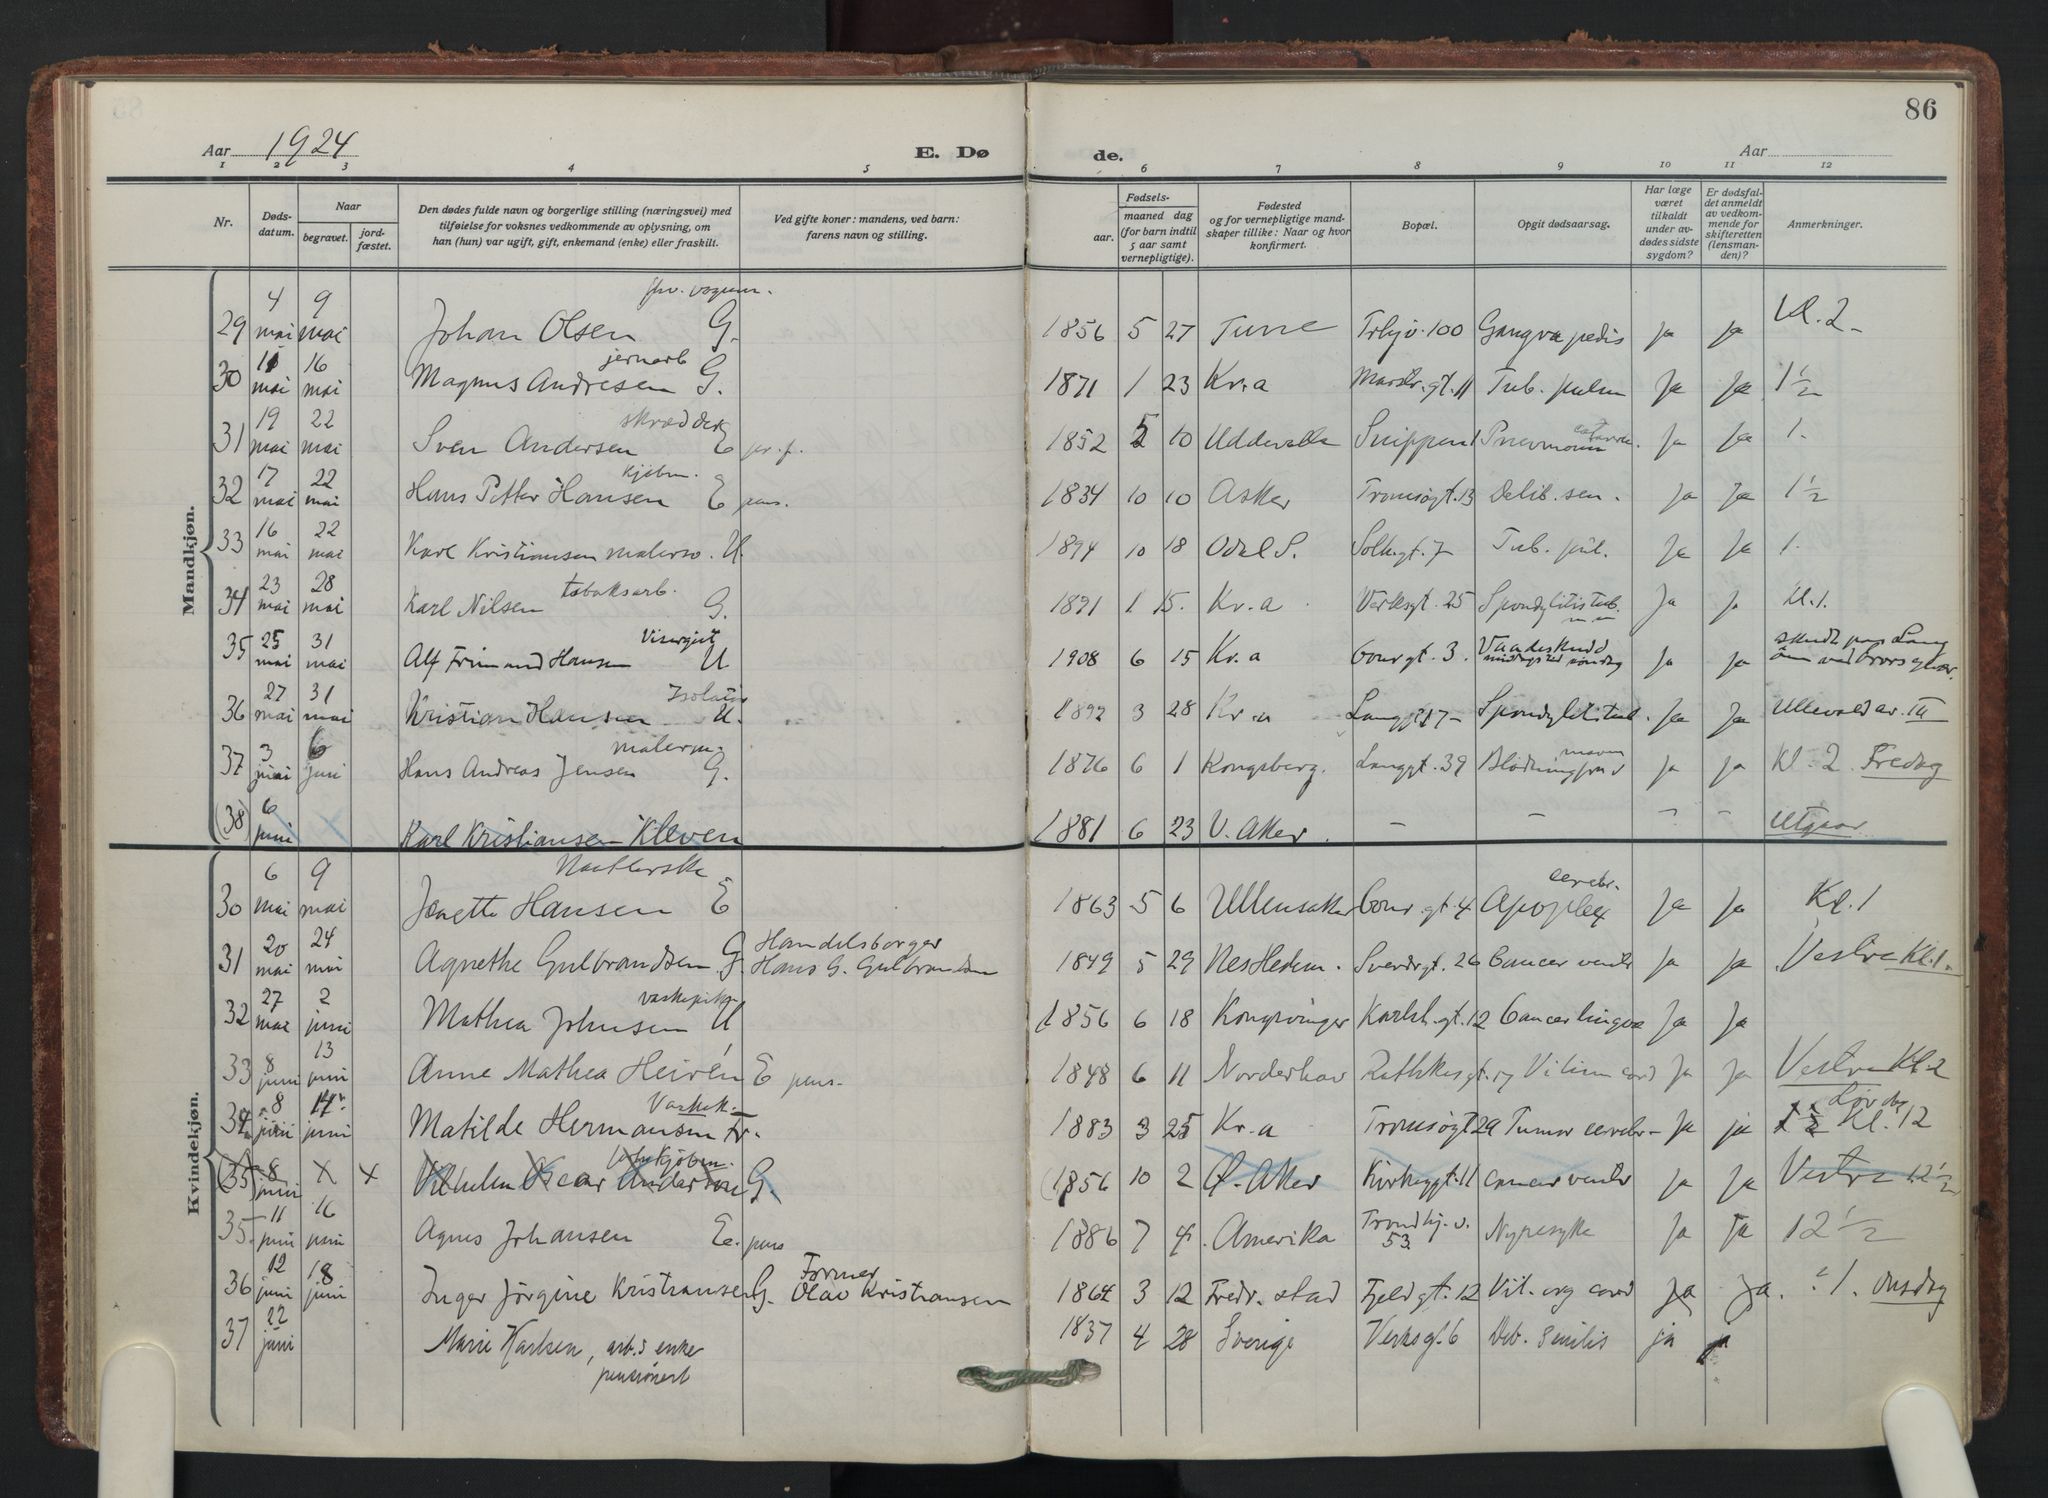 86
Aar 1924
E. Døde.
Aar
1 2 3 4 5 6 7 8 9 10 11 12
Nr.
Døds-
datum.
Naar
begravet.
jord-
fæstet.
Den dødes fulde navn og borgerlige stilling (næringsvei) med
tilføielse for voksnes vedkommende av oplysning, om
han (hun) var ugift, gift, enkemand (enke) eller fraskilt.
Ved gifte koner: mandens, ved barn:
farens navn og stilling.
Fødsels-
aar.
maaned dag
(for barn indtil
5 aar samt
vernepligtige).
Fødested
og for vernepligtige mand-
skaper tillike: Naar og hvor
konfirmert.
Bopæl.
Opgit dødsaarsag.
Har læge
været
tilkaldt
under av-
dødes sidste
sygdom?
Er dødsfal-
det anmeldt
av vedkom-
mende for
skifteretten
(lensman-
den)?
Anmerkninger.
Mandkjøn.
29 4 mai 9 mai Johan Olsen G. 1856 5 27 Tune Trhjv. 100 pedis ja ja Kl. 2-
30 11 mai 16 mai jernarb Magnus Andresen G. 1871 1 23 Kr.a gt. 11 Tub. pulm ja ja 1 1/2
31 19 mai 22 mai skrædder Sven Andersen E 1852 5 10 Uddevalla Snippen 1 Pnevmonia ja ja 1.
32 17 mai 22 mai kjøbm. Hans Petter Hansen E pens. 1834 10 10 Asker Tromsøgt. 13 Debil. sen. ja ja 1 1/2
33 16 mai 22 mai Karl Kristiansen malersv. U. 1894 10 18 Odal S. gt. 7 Tub. pul. ja ja 1.
34 23 mai 28 mai tobaksarb. Karl Nilsen G. 1891 1 15. Kr.a Verksgt. 25 Spondylitis tub. ja ja Kl. 1.
35 25 mai 31 mai Visergut Alf Frimand Hansen U 1908 6 15 Kr.a gt. 3. Vaadeskudd ja ja
36 27 mai 31 mai Kristian Hansen U. 1892 3 28 Kr.a Spondylitis tub. ja ja Ullevold av. III
37 3 juni 6 juni malerm. Hans Andreas Jensen G. 1876 6 1 Kongsberg. Langgt. 39 Blødning fra maven ja ja Kl. 2. Fredag
(38) 6 juni x Karl Kristiansen Kleven 1881 6 23 V. Aker. - - - - Utgaar
Kvindekjøn.
30 6 mai 9 mai Janette Hansen E 1863 5 6 Ullensaker gt. 4 Apoplex cerebr. ja ja Kl. 1
31 20 mai 24 mai Agnethe Gulbrandsen G. Handelsborger
Hans G. Gulbrandsen 1849 5 29 Nes Hedm. Sverdrgt. 26 Cancer ventr ja ja Vestre Kl. 1.
32 27 mai 2 juni vaskepike Mathea Johnsen U 1856 6 18 Kongsvinger Karlsb. gt. 12 Cancer lingvæ ja ja
33 8 juni 13 juni Anne Mathea Heirén E pens. 1848 6 11 Norderhov Rathkesgt. 17 Vitium cord ja ja Vestre Kl. 2
34 8 juni 14 juni Vaskek. Matilde Hermansen Fr. 1883 3 25 Kr.a Tromsøgt 29 Tumor cerebr- ja ja Lørdag Kl. 12
(35) 8 juni x x Vilhelm Oscar Anderson G. 1856 10 2 Ø. Aker Kirkeggt. 11 cancer ventr ja ja Vestre 12 1/2
35. 11 juni 16 juni Agnes Johansen E. pens 1886 7 4. Amerika Trondhj. v. 53. Nyresyke ja ja 12 1/2
36 12 juni 18 juni Inger Jørgine Kristiansen G. Former
Olav Kristiansen 1864 3 12 Fredr. stad Fjeldgt. 12 Vit. org cord ja ja. 1. Onsdag
37 22 juni Marie Karlsen, arb.s enke
pensionert 1837 4 28 Sverige Verksgt. 6 Deb. senilis ja